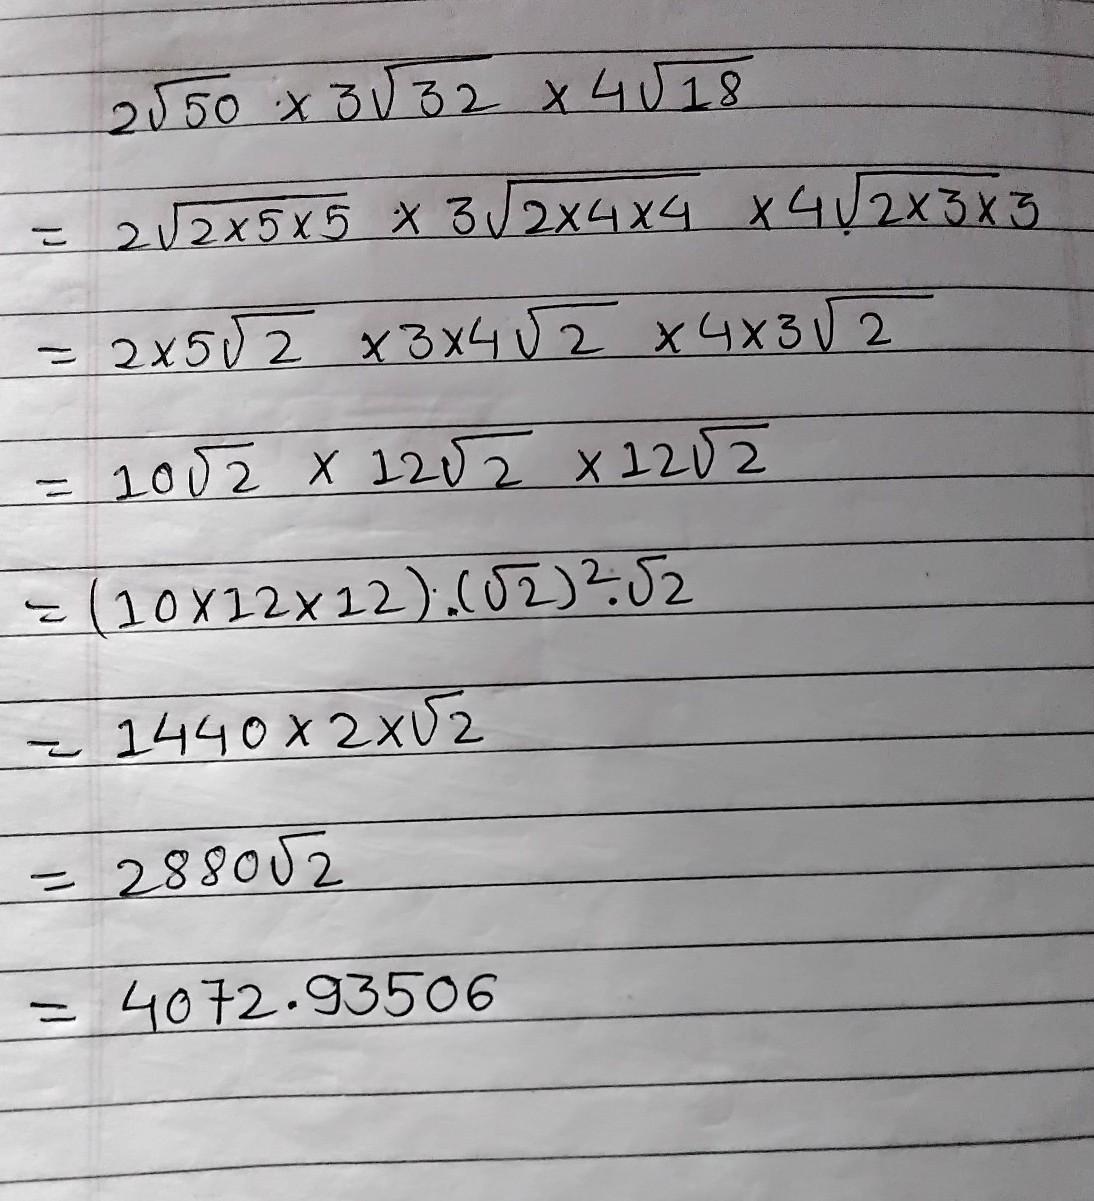 2√50 × 3√32 × 4√18
= 2√2×5×5 × 3√2×4×4 × 4√2×3×3
= 2×5√2 × 3×4√2 × 4×3√2
= 10√2 × 12√2 × 12√2
= (10×12×12).(√2)².√2
= 1440×2×√2
= 2880√2
= 4072.93506